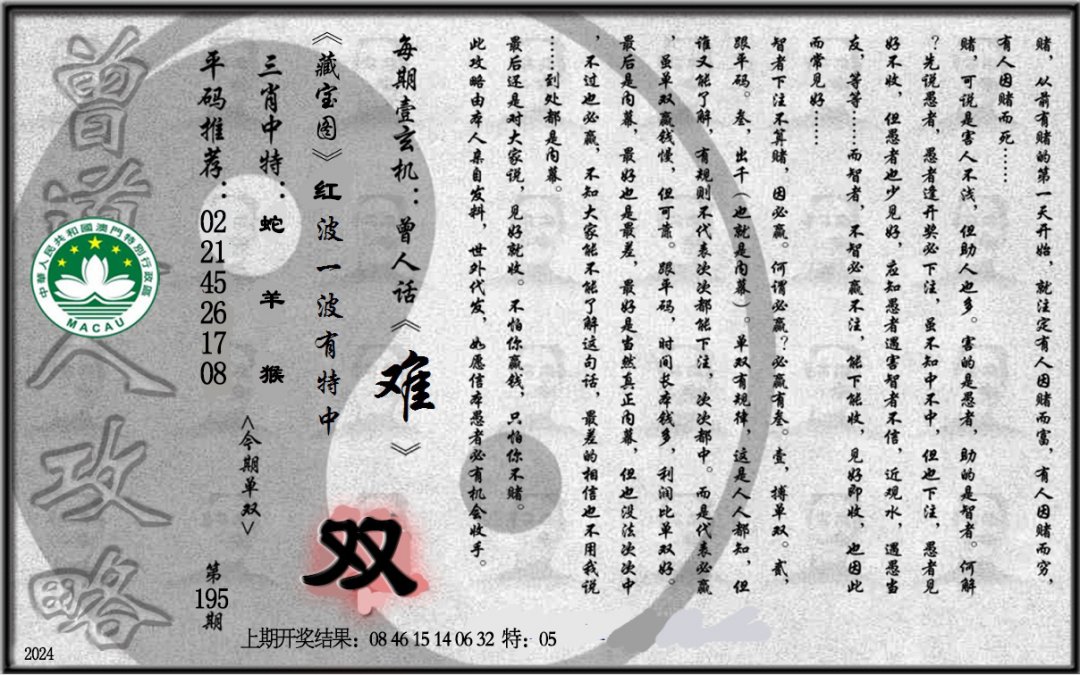 赌，从前有赌的第一天开始，就注定有人因赌而富，有人因赌而穷，
有人因赌而死……
赌，可说是害人不浅，但助人也多。害的是愚者，助的是智者。何解
？先说愚者，愚者逢开奖必下注，虽不知中不中，但也下注，愚者见
好不收，但愚者也少见好，应知愚者遇害智者不信，近观水，遇愚当
友，等等……而智者，不智必赢不注，能下能收，见好即收，也因此
而常见好……
智者下注不算赌，因必赢。何谓必赢？必赢有叁。壹，搏单双。贰，
跟平码。叁，出千（也就是内幕）。单双有规律，这是人人都知，但
谁又能了解，有规则不代表次次都能下注，次次都中。而是代表必赢
，虽单双赢钱慢，但可靠。跟平码，时间长本钱多，利润比单双好。
最后是内幕，最好也是最差，最好是当然真正内幕，但也没法次次中
，不过也必赢，不知大家能不能了解这句话，最差的相信也不用我说
……到处都是内幕。
最后还是对大家说，见好就收。不怕你赢钱，只怕你不赌。
此攻略由本人亲自发料，世外代发，如愿信本愚者必有机会收手。
每期壹玄机：曾人话《难》
《藏宝图》红波一波有特中
三肖中特：蛇 羊 猴
<今期单双>
双
平码推荐：02 21 45 26 17 08
第195期
曾道人攻略
中華人民共和國澳門特別行政區
MACAU
上期开奖结果：08 46 15 14 06 32 特：05
2024